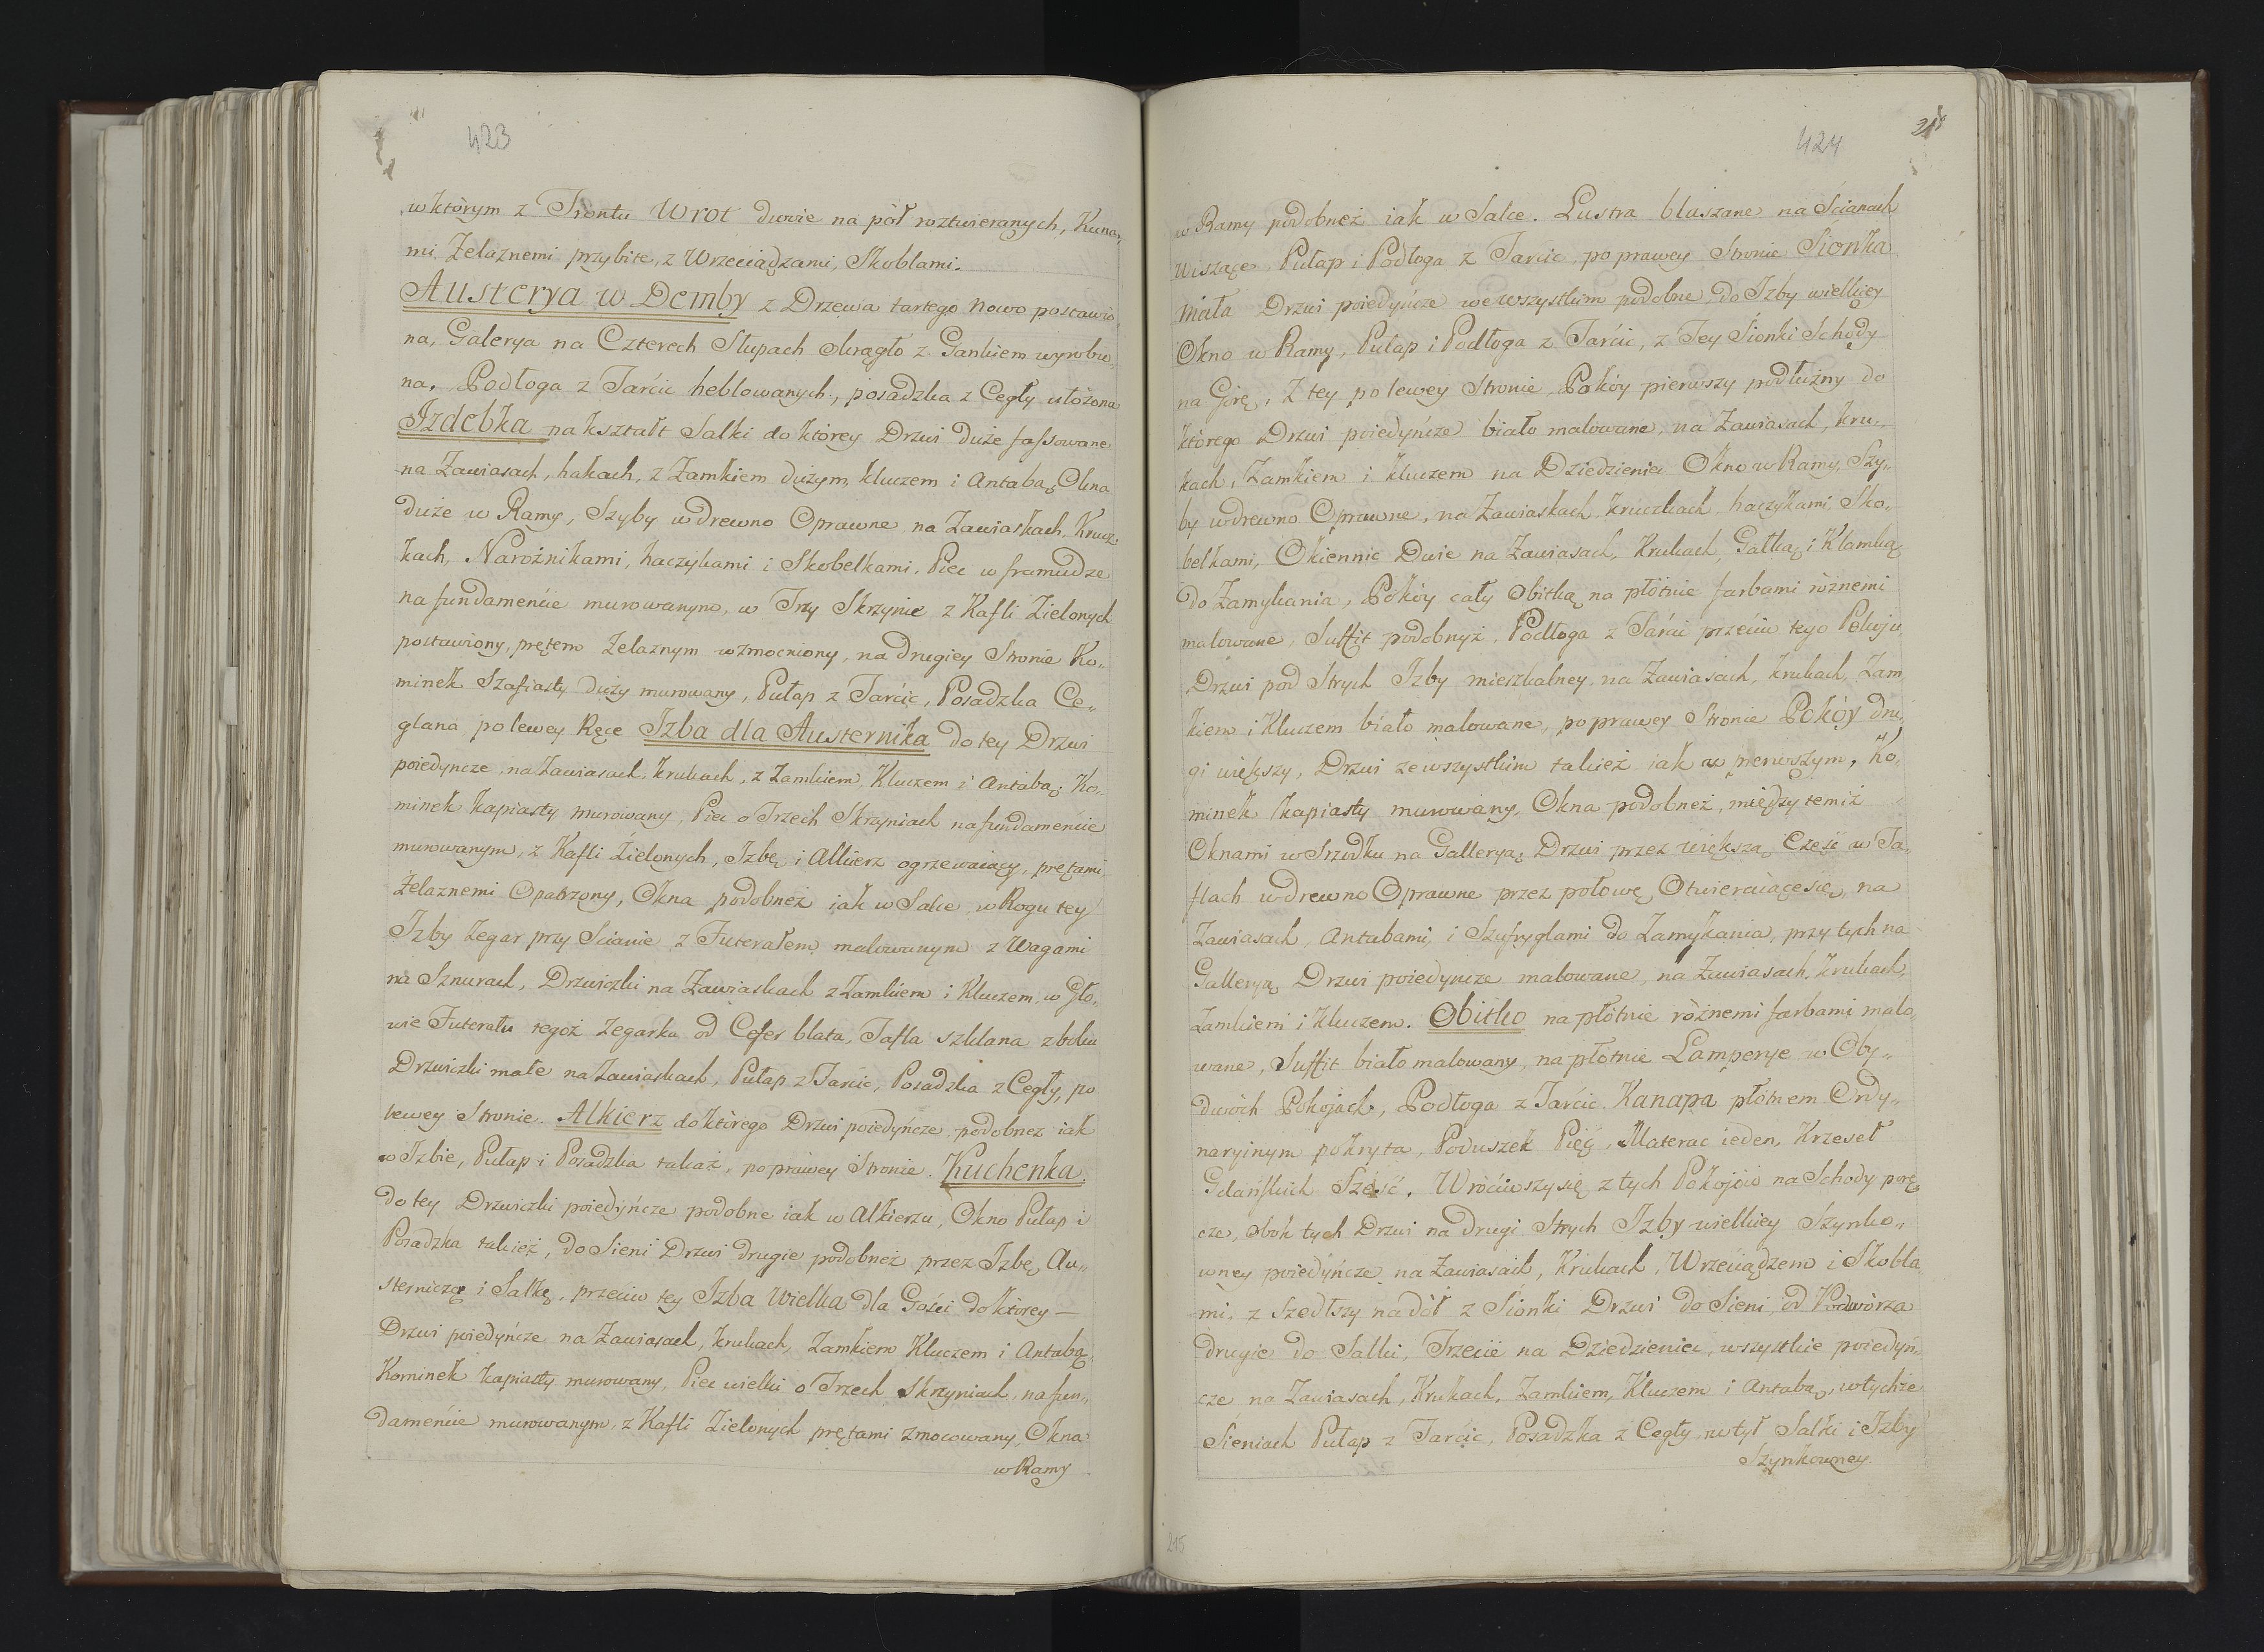 423
w którym z Frontu Wrot dwoie na pół roztwieranych, Kuna„
mi Żelaznemi przybite, z Wrzeciądzami, Skoblami.
Austerya w Demby z Drzewa tartego nowo postawio„
na, Galerya na Czterech Słupach okrągło z Gankiem wyrobio„
na. Podłoga z Tarcic heblowanych, posadzka z Cegły ułożona
Izdebka na kształt Salki do którey Drzwi duże fassowane
na Zawiasach, hakach, z Zamkiem dużym, kluczem i Antabą, Okna
duże w Ramy, Szyby w drewno Oprawne na Zawiaskach, Krucz„
kach, Narożnikami, haczykami i Skobelkami. Piec w framudze
na fundamencie murowanym, w Trzy Skrzynie z Kafli Zielonych
postawiony, prętem żelaznym wzmocniony, na drugiey Stronie Ko„
minek Szafiasty duży murowany, Pułap z Tarcic, Posadzka Ce„
glana po lewey Ręce Izba dla Austernika do tey Drzwi
poiedyncze, na Zawiasach, krukach, z Zamkiem, Kluczem i Antabą. Ko„
minek kapiasty murowany, Piec o Trzech Skrzyniach na fundamencie
murowanym, z Kafli Zielonych, Izbę i Alkierz ogrzewaiący, prętami
Żelaznemi Opatrzony, Okna podobneż iak w Salce w Rogu tey
Izby Zegar przy Scianie z Futerałem malowanym z Wagami
na Sznurach, Drzwiczki na Zawiaskach z Zamkiem i Kluczem, w Gło„
wie Futerału tegoż Zegarka od Cefer blata, Tafla szklana z boku
Drzwiczki małe na Zawiaskach, Pułap z Tarcic, Posadzka z Cegły, po
lewey Stronie. Alkierz do którego Drzwi poiedyńcze podobnez iak
w Izbie, Pułap i Posadzka takaż, po prawey Stronie. Kuchenka.
do tey Drzwiczki poiedyńcze podobne iak w Alkierzu, Okno Pułap i
Posadzka takież, do Sieni Drzwi drugie podobneż przez Izbę Au„
sterniczą i Salkę, przeciw tey Izba Wielka dla Gości do którey —
Drzwi poiedyńcze na Zawiasach, krukach, Zamkiem Kluczem i Antabą.
Kominek kapiasty murowany, Piec wielki o Trzech Skrzyniach, na fun„
damencie murowanym, z Kafli Zielonych prętami zmocowany, Okna
w Ramy
424
w Ramy podobneż iak w Salce. Lustra bluszane na Scianach
Wiszące, Pułap i Podłoga z Tarcic, po prawey Stronie Sionka
mała Drzwi poiedyńcze we wszystkim podobne do Izby wielkiey
Okno w Ramy, Pułap i Podłoga z Tarcic, z Tey Sionki Schody
na Górę, z tey po lewey Stronie, Pokóy pierwszy podłużny do
którego Drzwi poiedyńcze biało malowane, na Zawiasach, kru„
kach, Zamkiem i kluczem na Dziedzieniec Okno w Ramy, Szy„
by w drewno Oprawne, na Zawiaskach, kruczkach, haczykami, Sko„
belkami, Okiennic Dwie na Zawiasach, krukach, Gałką i Klamką
do Zamykania, Pokóy cały Obitką na płótnie farbami różnemi
malowane, Suffit podobnyż. Podłoga z Tarcic przeciw tego Pokoju
Drzwi pod Strych Izby mieszkalney, na Zawiasach, krukach, Zam„
kiem i Kluczem biało malowane, po prawey Stronie Pokóy dru„
gi większy, Drzwi ze wszystkim takież iak w pierwszym, Ko„
minek kapiasty murowany, Okna podobneż, między temiż
Oknami w Srzodku na Galleryą, Drzwi przez większą Część w Ta„
flach w drewno Oprawne przez połowę Otwieraiące się, na
Zawiasach, Antabami, i Szufryglami do Zamykania, przy tych na
Galleryą Drzwi poiedyncze malowane, na Zawiasach, krukach,
Zamkiem i kluczem. Obitko na płótnie różnemi farbami malo„
wane, Suffit biało malowany, na płótnie Lamperye w Oby„
dwóch Pokojach, Podłoga z Tarcic. Kanapa płótnem Ordy„
naryinym pokryta, Poduszek Pięć, Materac ieden, Krzeseł
Gdańskich Sześć. Wróciwszy się z tych Pokoiów na Schody porę„
cze, obok tych Drzwi na drugi Strych Izby wielkiey Szynko„
wney poiedyńcze na Zawiasach, Krukach, Wrzeciądzem i Skobla„
mi. z Szedłszy na dół z Sionki Drzwi do Sieni, od Podwórza
drugie do Salki, Trzecie na Dziedzieniec, wszystkie poiedyń„
cze na Zawiasach, Krukach, Zamkiem, Kluczem i Antabą, w tychże
Sieniach Pułap z Tarcic, Posadzka z Cegły, w tył Salki i Izby
Szynkowney.
215